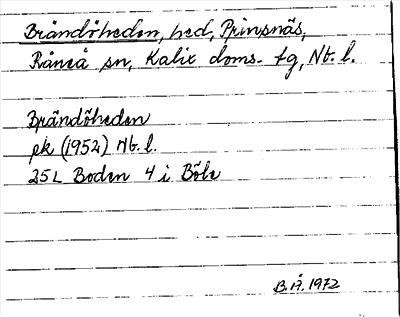 Brändöheden, hed, Prinsnäs,
Råneå sn, Kalix doms. tg, Nb. l.
Brändöheden
ek (1952) Nb. l.
25L Boden 4 i Böle
B.Å. 1972